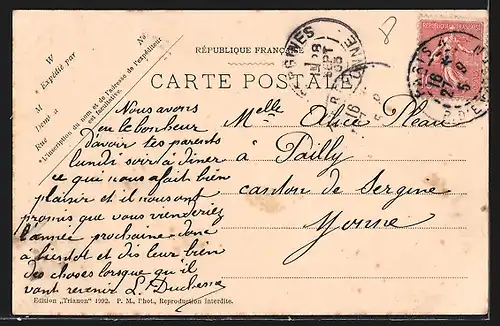 RÉPUBLIQUE FRANÇAISE
CARTE POSTALE
W
Expédié par
M
Demt à
Rue
N°
N°
"L'inscription du nom et de l'adresse de l'expéditeur
est facultative."
SERGINES
28
SEPT
05
YONNE
PARIS
16
Melle Alice Pleau
à Pailly
canton de Sergine
Yonne
Nous avons
eu le bonheur
d'avoir tes parents
lundi soir à diner
ce qui nous a fait bien
plaisir et il nous ont
promis que vous viendriez
l'année prochaine donc
à bientot et dis leur bien
des choses lorsque qu'il
vont revenir L. Duchesne
Edition "Trianon" 1992. P. M., Phot., Reproduction interdite.